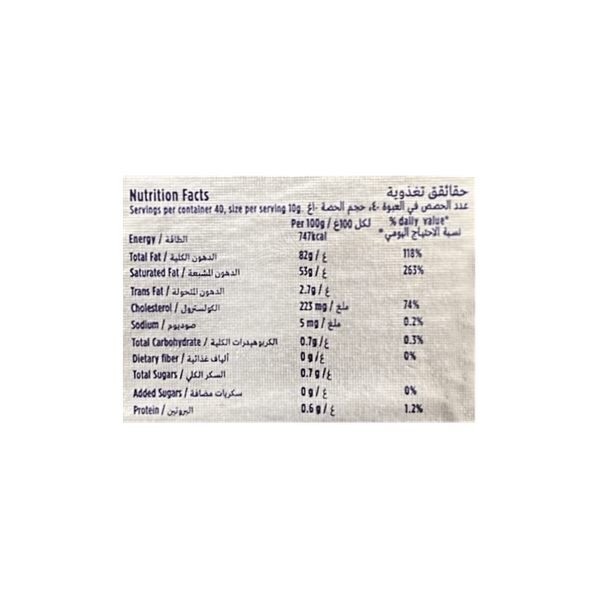 Nutrition Facts حقائق تغذوية
Servings per container 40, size per serving 10g. عدد الحصص في العبوة ٤٠، حجم الحصة ١٠غ
Per 100g / لكل 100غ % daily value*
نسبة الاحتياج اليومي*
Energy / الطاقة 747kcal
Total Fat / الدهون الكلية 82g / غ 118%
Saturated Fat / الدهون المشبعة 53g / غ 263%
Trans Fat / الدهون المتحولة 2.7g / غ
Cholesterol / الكولسترول 223 mg / ملغ 74%
Sodium / صوديوم 5 mg / ملغ 0.2%
Total Carbohydrate / الكربوهيدرات الكلية 0.7g / غ 0.3%
Dietary fiber / ألياف غذائية 0 g / غ 0%
Total Sugars / السكر الكلي 0.7 g / غ
Added Sugars / سكريات مضافة 0 g / غ 0%
Protein / البروتين 0.6 g / غ 1.2%